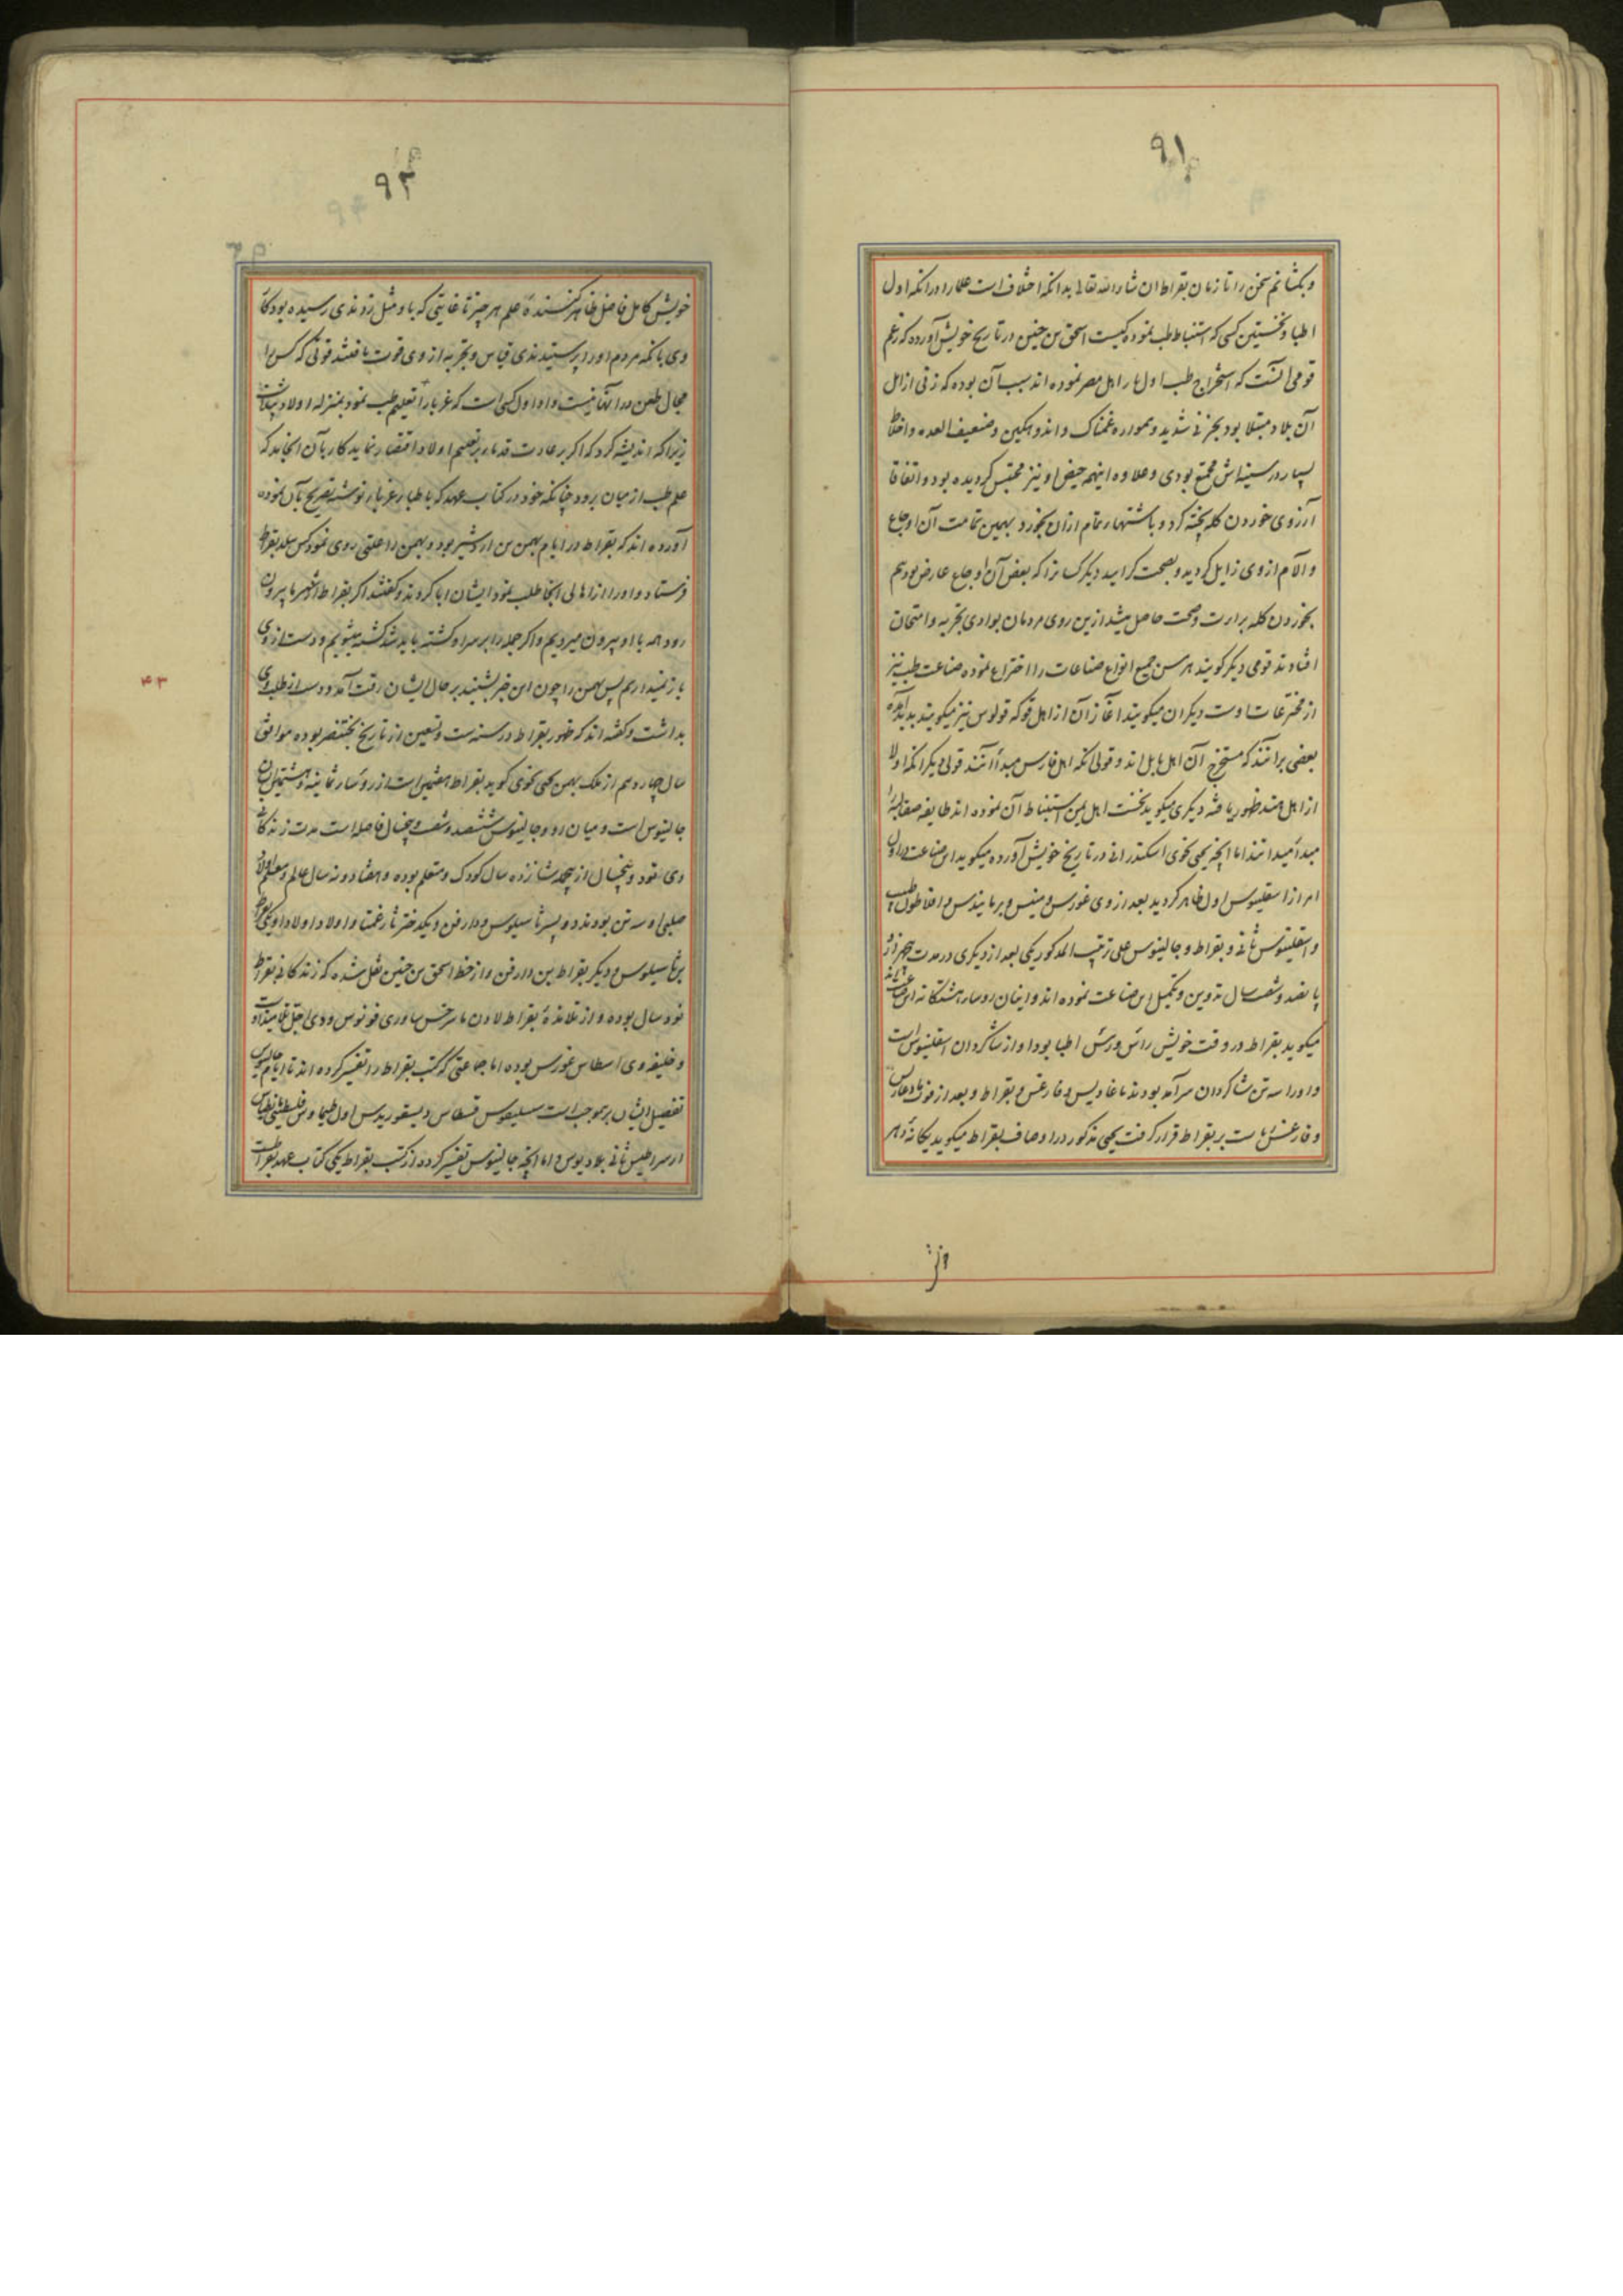 ۹۱
و بکشانم سخن را تا زمان بقراط ان شاء الله تعالی بدانکه اختلاف است علما را در انکه اول
اطبا و نخستین کسی که استنباط طب نموده کیست اسحق بن حنین در تاریخ خویش آورده که زعم
قومی آنست که استخراج طب اول بار اهل مصر نموده اند سبب آن بوده که زنی از اهل
آن بلاد مبتلا بود بحزنی شدید و همواره غمناک و اندوهگین و ضعیف المعده و اخلاط
بسیار در سینه اش مجتمع بودی و علاوه اینهمه حیض او نیز محتبس گردیده بود و اتفاقا
آرزوی خوردن کله پخته کرد و باشتهاء تمام ازان بخورد بهمین تمامت آن اوجاع
و آلام از وی زایل گردید و بصحت گرایید دیگر کسانرا که بعض آن اوجاع عارض بود هم
بخوردن کله براءت و صحت حاصل میشد ازین روی مردمان بوادی تجربه و امتحان
افتادند قومی دیگر گویند هرمس جمیع انواع صناعات را اختراع نموده صناعت طب نیز
از مخترعات اوست دیگران میگویند آغاز آن از اهل قو که قولوس نیز میگویند پدید آمده
بعضی برانند که مستخرج آن اهل بابل اند و قولی انکه اهل فارس مبدأ آنند قولی دیگر انکه اولا
از اهل هند ظهور یافته دیگری میگوید نخست اهل یمن استنباط آن نموده اند طایفه صقالبه را
مبدأ میدانند اما انچه یحیی نحوی اسکندرانی در تاریخ خویش آورده میگوید این صناعت در اول
امر از اسقلینوس اول ظاهر گردید بعد از وی غورس و مینس و برمانیدس و افلاطون طبیب
و اسقلینوس ثانی و بقراط و جالینوس علی ترتیب المذکور یکی بعد از دیگری در مدت پنجهزار و
پانصد و شصت سال تدوین و تکمیل این صناعت نموده اند و اینان رؤساء هشتگانه این صناعت اند
میگوید بقراط در وقت خویش رأس و رئیس اطبا بود و او از شاگردان اسقلینوس است
و او را سه تن شاگردان سرآمد بودند ماغادیس و فارغس و بقراط و بعد از فوت ماغادیس
و فارغس ریاست بر بقراط قرار گرفت یحیی مذکور در اوصاف بقراط میگوید یگانه دهر
خویش
۹۲
خویش کامل فاضل ظاهر کننده علم هر چیز تا غایتی که باو مثل زدندی رسیده بود کار
وی بانکه مردم او را پرستیدندی قیاس و تجربه از وی قوت یافتند قوتی که کس را
مجال طعن در آنها نیست و او اول کسی است که غربا را تعلیم طب نمود بمنزله اولاد پنداشت
زیرا که اندیشه کرد که اگر بر عادت قدما بر تعلیم اولاد اقتصار نماید کار بآن انجامد که
علم طب از میان برود چنانکه خود در کتاب عهد که باطباء غربا نوشته تصریح بآن نموده
آورده اند که بقراط در ایام بهمن بن اردشیر بود و بهمن را علتی روی نمود کس ببلد بقراط
فرستاد و او را از اهالی انجا طلب نمود ایشان ابا کردند و گفتند اگر بقراط از شهر ما بیرون
رود همه با او بیرون میرویم و اگر جمله را بر سر او کشته باید شد کشته میشویم و دست از وی
باز نمیداریم پس بهمن را چون این خبر بشنید بر حال ایشان رقت آمد و دست از طلب وی
بداشت و گفته اند که ظهور بقراط در سنه ست و تسعین از تاریخ بختنصر بوده موافق
سال چهاردهم از ملک بهمن یحیی نحوی گوید بقراط هفتمین است از رؤساء ثمانیه و هشتمین ایشان
جالینوس است و میان او و جالینوس ششصد و شصت و پنجسال فاصله است مدت زندگانی
وی نود و پنجسال از جمله شانزده سال کودک و متعلم بوده و هفتاد و نه سال عالم و معلم اولاد
صلبی او سه تن بودند دو پسر ثاسیلوس و دارقن و یکدختر ثارغمتا و اولاد اولاد او یکی بقراط
بن ثاسیلوس و دیگر بقراط بن دارقن و از خط اسحق بن حنین نقل شده که زندگانی بقراط
نود سال بوده و از تلامذه بقراط لادن ماسرجس ساوری فونوس و وی اجل تلامیذ او
و خلیفه وی اسطاس غورس بوده اما جماعتی که کتب بقراط را تفسیر کرده اند تا ایام جالینوس
تفصیل ایشان بر موجب است سبلیقوس قسطاس دیسقوریدس اول طیماوس فلسطینی
ارسراطیس ثانی بلادیوس و اما انچه جالینوس تفسیر کرده از کتب بقراط یکی کتاب عهد بقراط است
۴۳